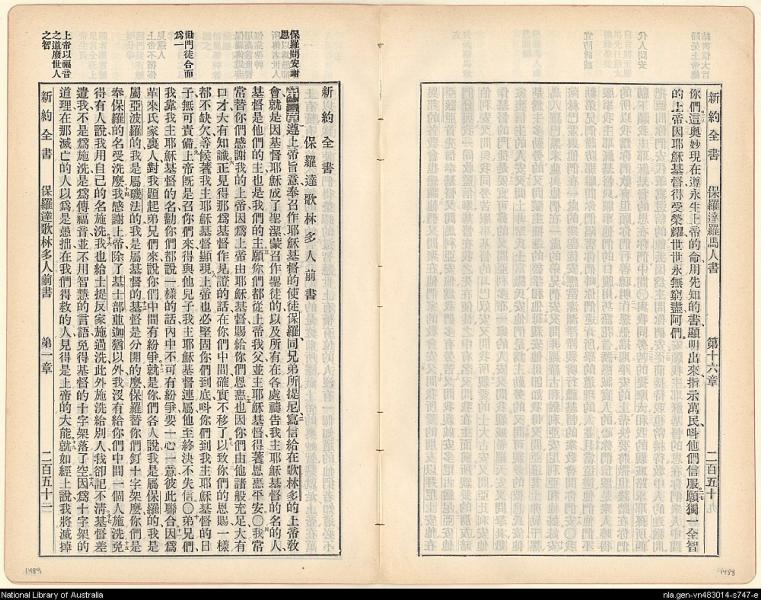 新約全書 保羅達羅馬人書 第十六章 二百五十
你們這奧妙現在遵永生上帝的命用先知的書顯明出來指示萬民呌他們信服願獨一全智
的上帝因耶穌基督得受榮耀世世永無窮盡阿們
1488
新約全書
保羅達歌林多人前書
保羅問安謝恩
遵上帝旨意奉召作耶穌基督的使徒保羅同兄弟所提尼寫信給在歌林多的上帝教
會就是因基督耶穌成了聖潔蒙召作聖徒的以及所有在各處禱告我主耶穌基督的名的人
基督是他們的主也是我們的主願你們都從上帝我父並主耶穌基督得著恩惠平安〇我常
常替你們感謝我的上帝因爲上帝由耶穌基督賜給你們恩惠也因你們由他諸般充足大有
口才大有知識正見得那爲基督作見證的話在你們中間確實不移了以致你們的恩賜一樣
都不缺欠等候著我主耶穌基督顯現上帝也必堅固你們到底呌你們到我主耶穌基督的日
子無可責備上帝既是召你們來得與他兒子我主耶穌基督連屬他至終決不失信〇弟兄們
勸門徒合而爲一
我靠我主耶穌基督的名勸你們都說一樣的話內中不可有紛爭要一心一意彼此聯合因爲
革來氏家裏人對我題起弟兄們來說你們中間有紛爭就是你們各人說我是屬保羅的我是
屬亞波羅的我是屬磯法的我是屬基督的基督是分開的麼保羅替你們釘十字架麼你們是
奉保羅的名受洗麼我感謝上帝除了基士部並迦猶以外我沒有給你們中間一個人施洗免
得有人說我用自己的名施洗我也給士提反家施過洗此外施洗給別人我卻記不清基督差
上帝以福音之道廢世人之智
遣我不是爲施洗是爲傳福音並不用智慧的言語免得基督的十字架落了空因爲十字架的
道理在那滅亡的人以爲是愚拙在我們得救的人見得是上帝的大能就如經上說我將滅掉
新約全書 保羅達歌林多人前書 第一章 二百五十二
1489
National Library of Australia
nla.gen-vn483014-s747-e